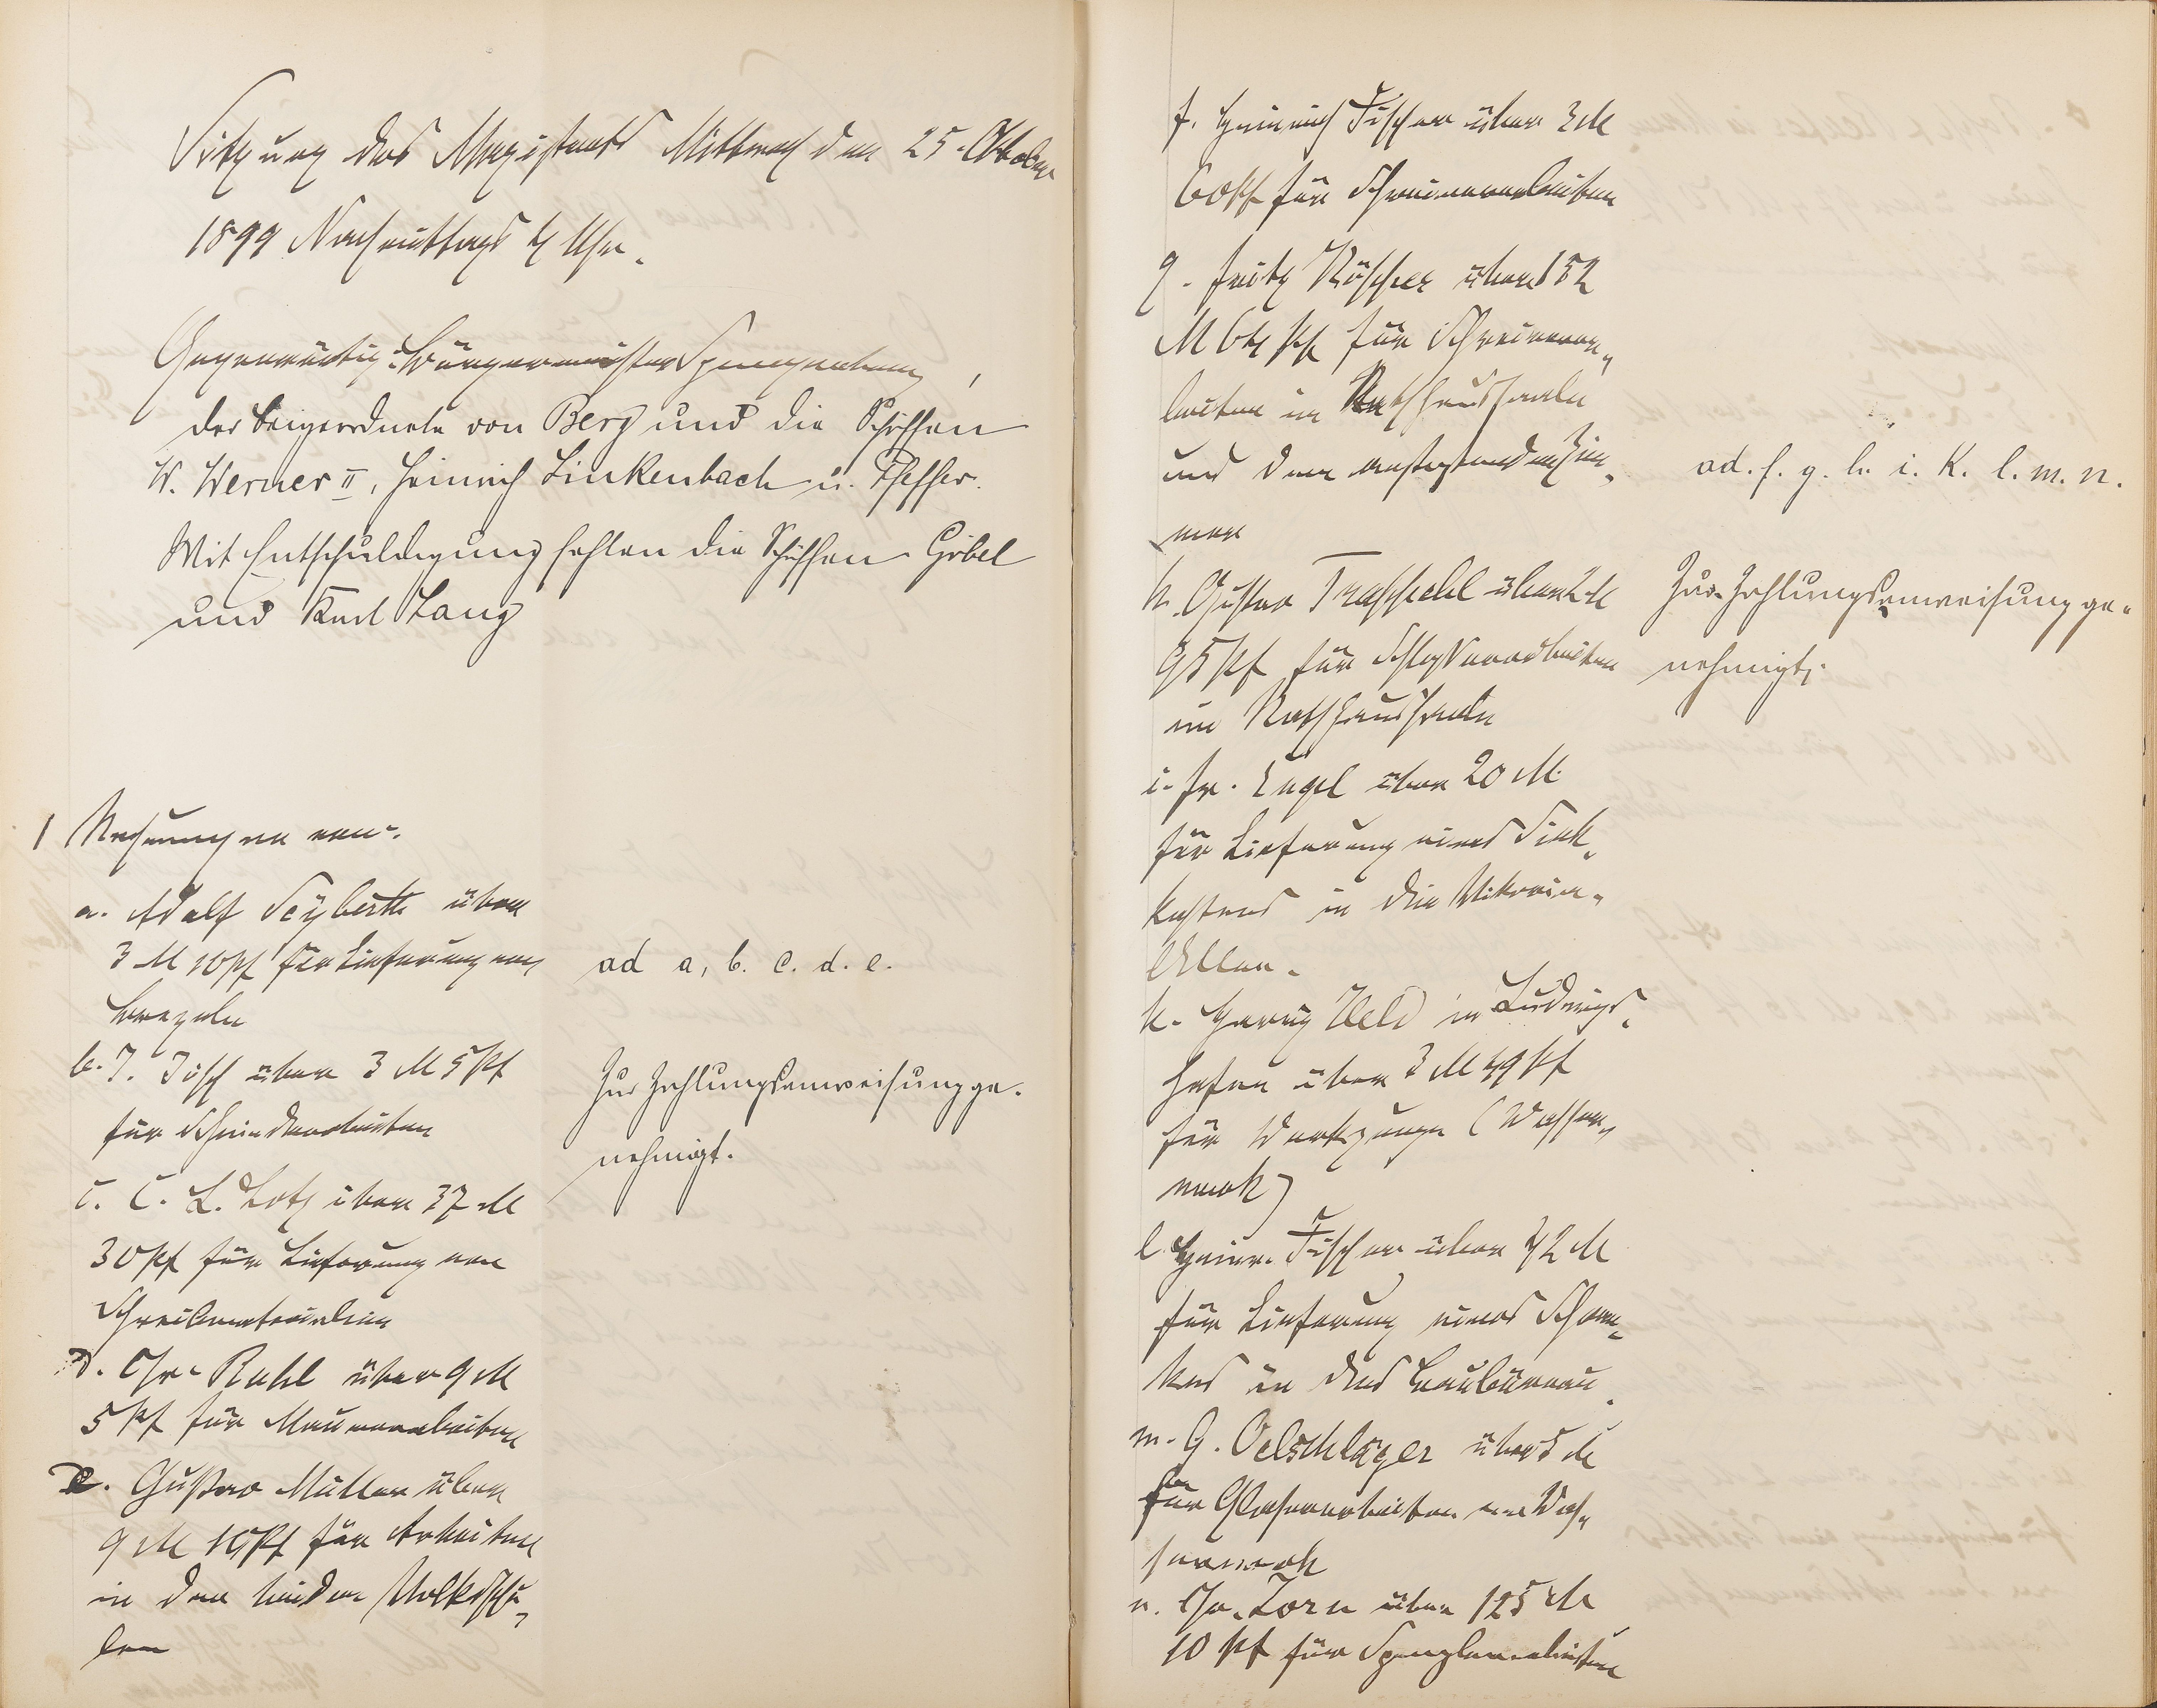 Sitzung des Magistrats Mittwoch den 25. Oktober
1899 Nachmittags 4 Uhr.
Gegenwärtig: Bürgermeister Spangenberg,
der Beigeordnete von Berg und die Schöffen
W. Werner II, Heinrich Linkenbach u. Pfeffer.
Mit Entschuldigung fehlen die Schöffen Göbel
und Karl Lang
1 Rechnungen von:
a. Adolf Seyberth über
3 M 10 Pf für Lieferung von
Kordeln
b. J. Jösch über 3 M 5 Pf
für Schmiedearbeiten
c. C. L. Lotz über 37 M
30 Pf für Lieferung von
Schreibmaterialien
d. Chr. Ruhl über 9 M
5 Pf für Maurerarbeiten
e. Gustav Müller über
9 M 10 Pf für Arbeiten
in den beiden Volksschu-
len
ad a, b. c. d. e.
Zur Zahlungsanweisung ge-
nehmigt.
f. Heinrich Fischer über 3 M
60 Pf für Schreinerarbeiten
g. Fritz Röscher über 152
M 64 Pf für Schreinerar-
beiten im Rathhaussaale
und dem anstoßenden Zim-
mer
h. Gustav Traschehl über 2 M
95 Pf für Schlosserarbeiten
im Rathhaussaale
i. Fr. Engel über 20 M.
für Lieferung eines Sink-
kastens in die Viktoria-
Allee.
k. Georg Held in Ludwigs-
hafen über 3 M 49 Pf
für Werkzeuge (Wasser-
werk)
l. Heinr. Fischer über 42 M
für Lieferung eines Schran-
kes in das Baubüreau.
m. G. Oelschläger über 5 M
für Glaserarbeiten am Was-
serwerk
n. Chr. Zorn über 125 M
10 Pf für Spenglerarbeiten
ad. f. g. h. i. k. l. m. n.
Zur Zahlungsanweisung ge-
nehmigt.